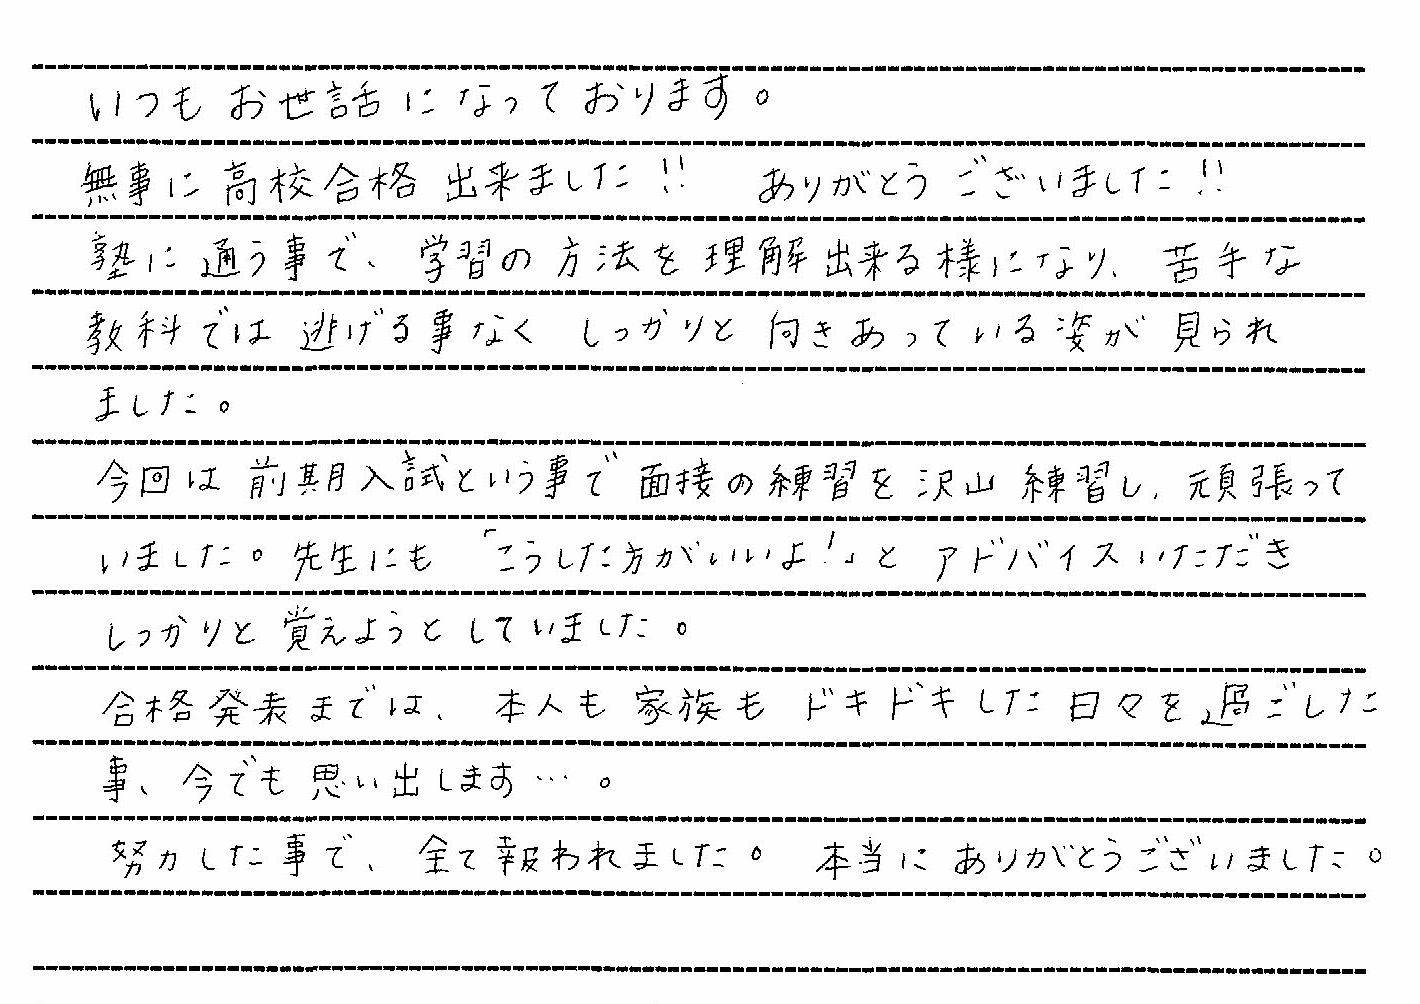 いつもお世話になっております。
無事に高校合格出来ました!! ありがとうございました!!
塾に通う事で、学習の方法を理解出来る様になり、苦手な
教科では逃げる事なくしっかりと向きあっている姿が見られ
ました。
今回は前期入試という事で面接の練習を沢山練習し、頑張って
いました。先生にも「こうした方がいいよ!」とアドバイスいただき
しっかりと覚えようとしていました。
合格発表までは、本人も家族もドキドキした日々を過ごした
事、今でも思い出します…。
努力した事で、全て報われました。本当にありがとうございました。